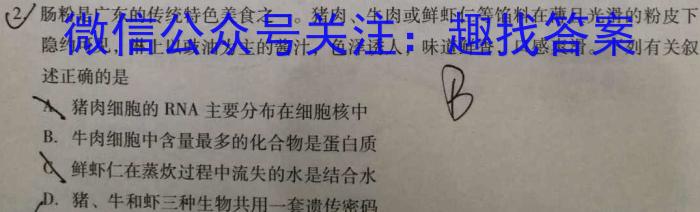 2. 肠粉是广东的传统特色美食之一。猪肉、牛肉或鲜虾仁等馅料在薄且光滑的粉皮下
微信公众号关注：趣找答案
述正确的是
A. 猪肉细胞的 RNA 主要分布在细胞核中
B
B. 牛肉细胞中含量最多的化合物是蛋白质
C. 鲜虾仁在蒸炊过程中流失的水是结合水
D. 猪、牛和虾三种生物共用一套遗传密码